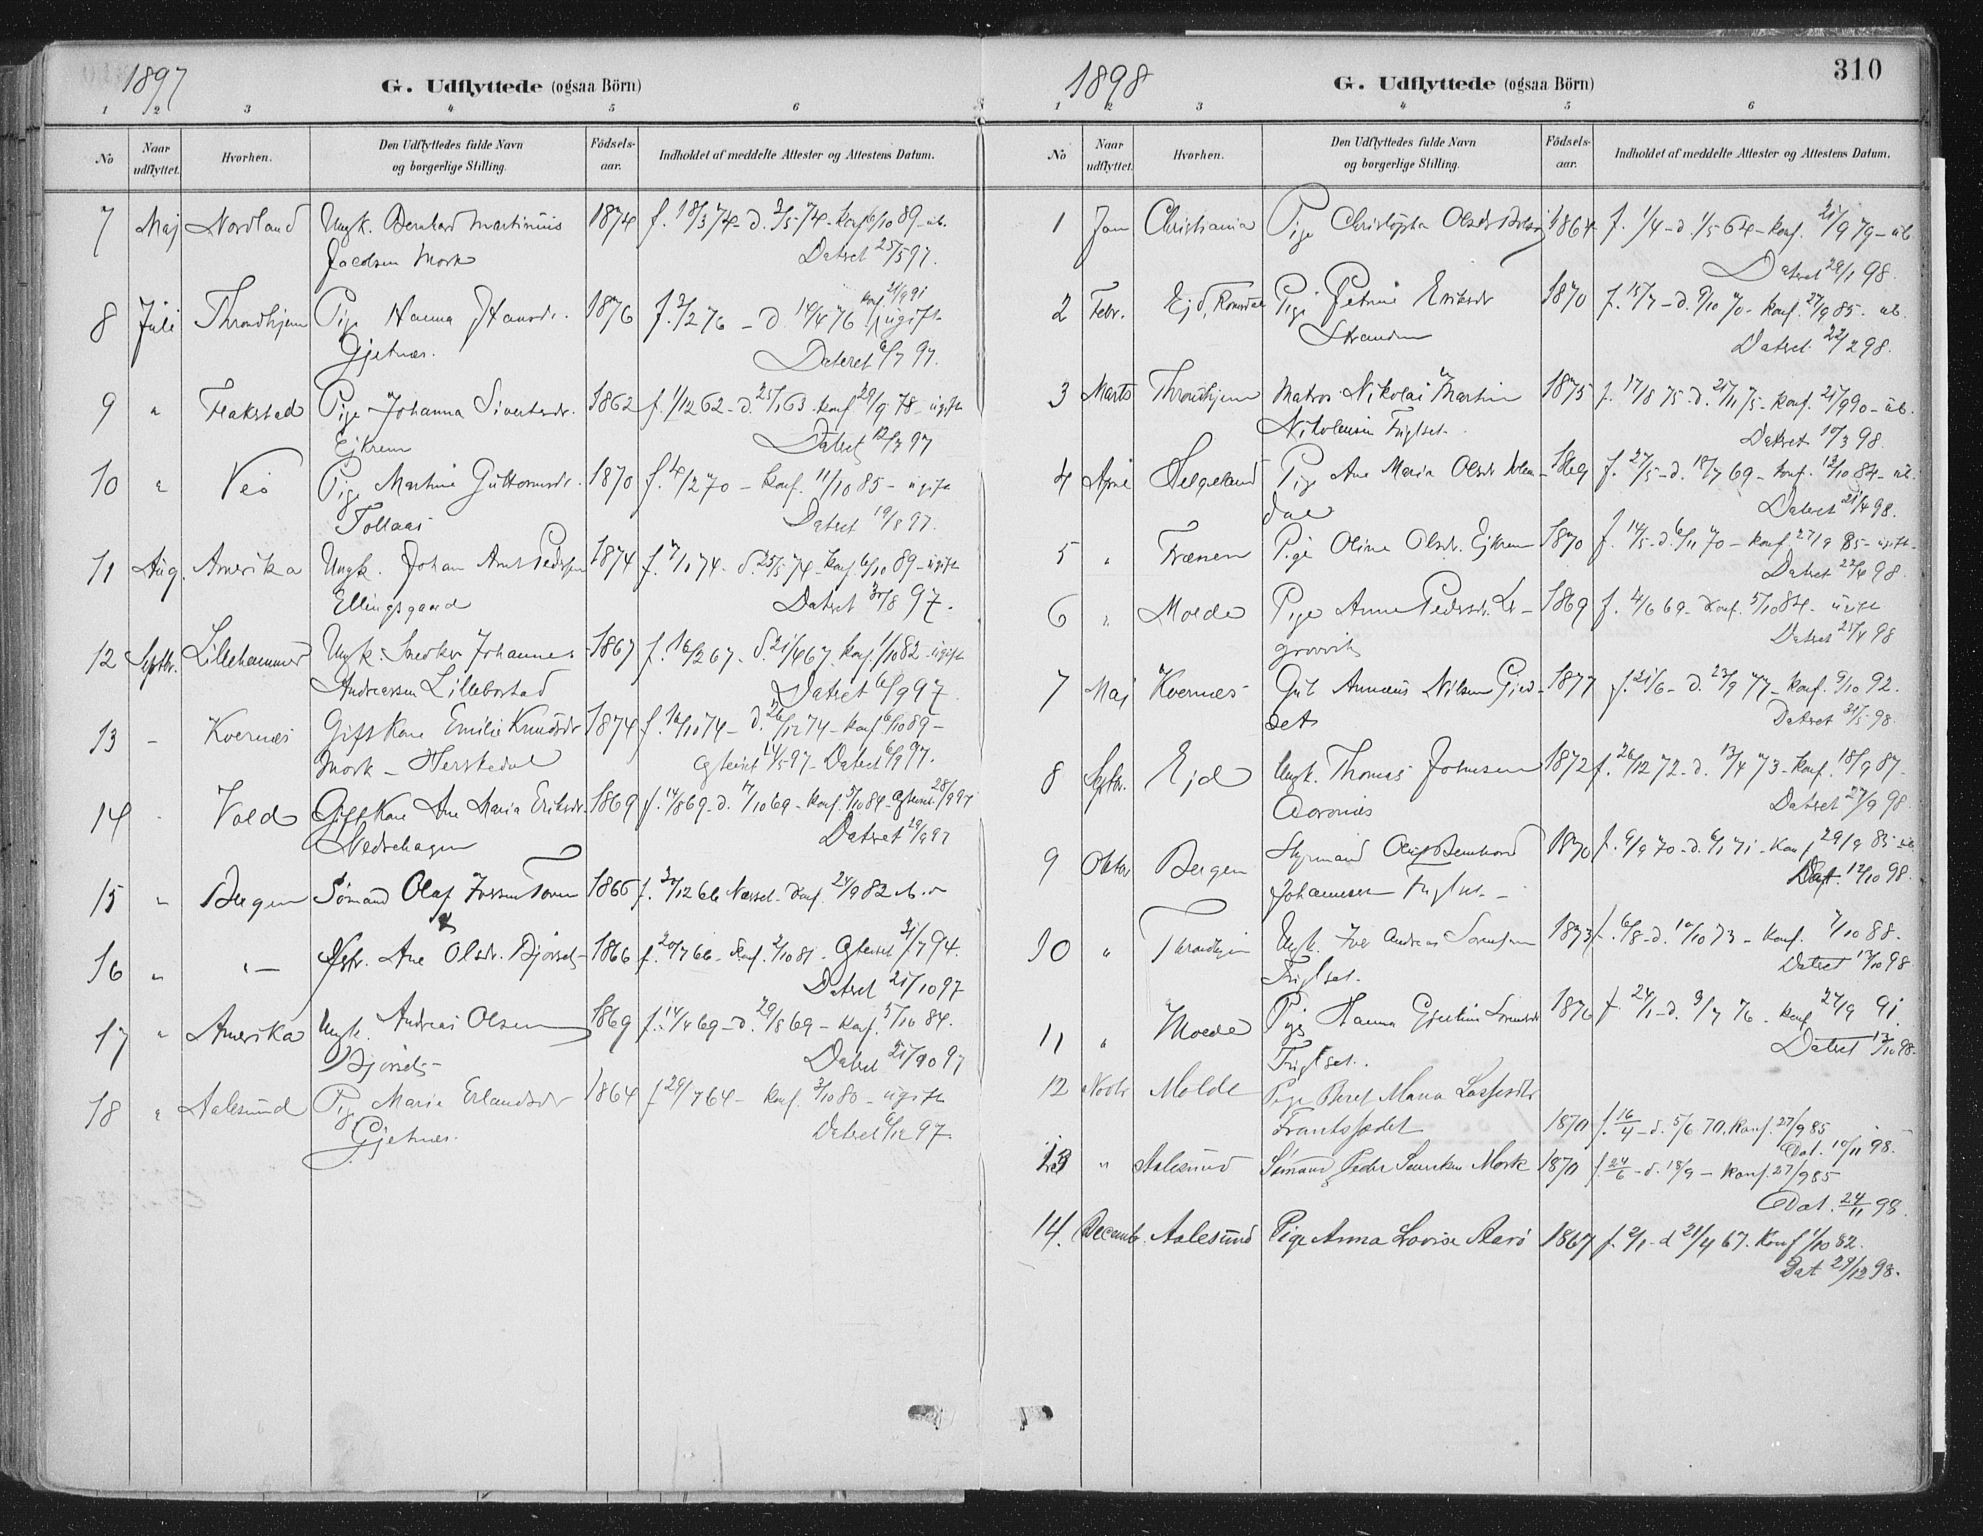 1897
G. Udflyttede (ogsaa Börn)
1 2 3 4 5 6
No
Naar udflyttet.
Hvorhen.
Den Udflyttedes fulde Navn og borgerlige Stilling.
Födsels-aar.
Indholdet af meddelte Attester og Attestens Datum.
7 Maj Nordland Ungk. Bernhard Martinius 1874 f. 18/3 74 - d. 3/5 74 - konf 6/10 89 - ub.
Jacobsen Mork Datret 25/5 97.
8 Juli Throndhjem Pige Hanna Hansdr. 1876 f. 2/2 76 - d. 14/4 76 konf. 21/9 91 ugift
Gjetnæs. Dateret 6/7 97.
9 " Flakstad Pige Johanna Sivertsdr. 1862 f. 1/12 62 - d. 25/1 63 - konf 29/9 78 - ugift
Ejkrem Datret 12/7 97
10 " Veö Pige Martine Guttormsdr. 1870 f. 4/2 70 - konf. 11/10 85 - ugift
Tollaas Datret 19/8 97.
11 Aug. Amerika Ungk. Johan Arnt Pedersen 1874 f. 7/1 74 - d. 25/5 74 - konf 6/10 89 - ugift
Ellingsgaard Datret 30/8 97.
12 Septbr. Lillehammer Ungk. Snedker Johannes 1867 f. 16/2 67 - d. 21/4 67. konf. 1/10 82 - ugift
Andreassen Lillebostad Datret 6/9 97
13 - Kvernæs Gift Kone Emilie Knudsdr 1874 f. 16/10 74 - d. 26/12 74 - konf 6/10 89 -
Mork - Herskedal gteviet 14/5 97 - Datret 6/9 97.
14 - Vold Gift Kone Ane Maria Eriksdr. 1869 f. 14/8 69 - d. 17/10 69 - konf. 5/10 84 - gteviet 28/9 97
Nedrehagen Datret 29/9 97
15 " Bergen Sömand Olaf Iversen 1866 f. 30/12 66 Næsset - konf. 24/9 82
16 " " - Ane Olsdr. Björsets 1866 f. 20/7 66 - konf. 2/10 81 - gteviet 21/7 94.
Datret 21/10 97
17 " Amerika Ungk. Andreas Olsen 1869 f. 14/4 69 - d. 29/8 69 - konf. 5/10 84.
Björsets - Datret 21/10 97
18 " Aalesund Pige Marie Erlandsdr 1864 f 29/7 64 - konf. 3/10 80 - ugift
Gjetnæs. Datret 6/12 97.
1898
G. Udflyttede (ogsaa Börn)
310
1 2 3 4 5 6
No
Naar udflyttet.
Hvorhen.
Den Udflyttedes fulde Navn og borgerlige Stilling.
Födsels-aar.
Indholdet af meddelte Attester og Attestens Datum.
1 Jan Christiania Pige Christopha Olsdr 1864 f. 1/4 - d. 1/5 64 - konf. 21/9 79 - ub
Datret 29/1 98.
2 Febr. Ejd, Romsdal Pige Petrine Eriksdr 1870 f. 15/7 - d. 9/10 70 - konf. 27/9 85 - ub.
Stranden Datret 22/2 98.
3 Marts Throndhjem Matros Nikolai Martin 1875 f. 17/8 75 - d. 21/11 75 - konf. 21/9 90 - ub.
Nikolaisen Fuglset. Datret 10/3 98.
4 April Helgeland Pige Ane Maria Olsdr 1869 f. 27/5 - d. 18/7 69 - konf. 12/10 84 - ub.
dal Datret 21/4 98.
5 " Frænen Pige Oline Olsdr. Ejkrem 1870 f. 14/5 - d. 6/11 70 - konf 27/9 85 - ugift -
Datret 22/4 98.
6 " Molde Pige Anne Pedersdr. Le- 1869 f. 4/6 69 - konf. 5/10 84 - ugift
grovvik Datret 25/4 98
7 Maj Kvernæs Gut Annæus Nilsen Gjed- 1877 f. 21/6 - d. 23/9 77 - konf. 9/10 92.
sets Datret 31/5 98.
8 Septbr. Ejd Ungk. Thomas Johnsen 1872 f. 26/12 72 - d. 13/4 73 - konf. 18/9 87 -
Aarønæs Datret 27/9 98.
9 Oktbr Bergen Styrmand Oluf Bernhard 1870 f. 9/9 70 - d. 6/1 71 - konf 29/9 85 - ub
Johannessen Fuglset - Dat. 12/10 98.
10 " Throndhjem Ungk. Iver Andreas Sørensen 1873 f. 6/8 - d. 12/10 73 - konf. 7/10 88.
Fuglset. Datret 13/10 98.
11 " Molde Pige Hanna Gjertine Sørensdr 1876 f. 24/1 - d. 9/7 76 - konf 27/9 91.
Fuglset. Datret 13/10 98.
12 Novbr Molde Pige Beret Maria Lasesdtr
Frantsfædet 1870 f. 16/4 - d. 5/6 70. konf. 27/9 85
Dat. 10/11 98.
13 " Aalesund Sömand Peder Mork 1870 f. 24/6 - d. 18/9 - konf. 27/9 85
Dat. 24/11 98.
14. Decemb. Aalesund Pige Anna Lovise Aarö 1867 f. 2/1 - d 21/4 67. Konf 1/10 82.
Dat 29/12 98.